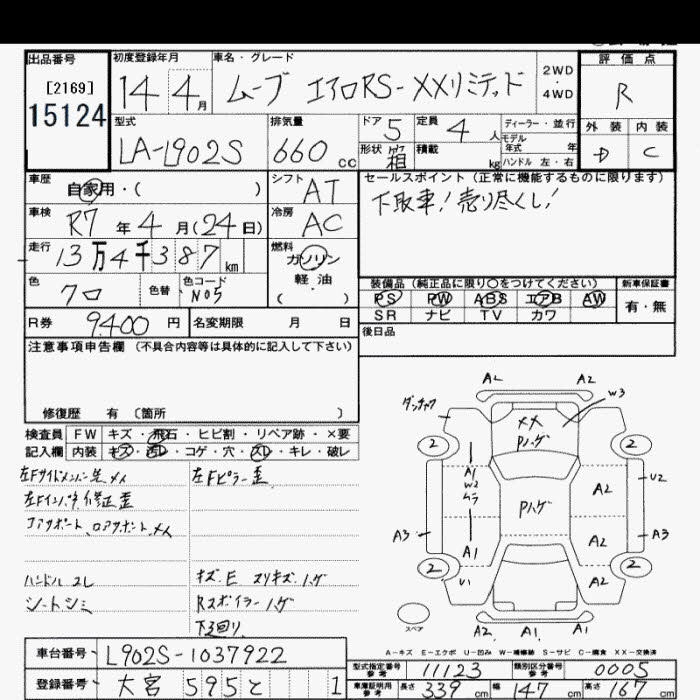 出品番号
[2169]
15124
初度登録年月
14 4 月
車名・グレード
ムーブ エアロRS-XXリミテッド
2WD
・
4WD
評価点
R
外装 内装
D C
型式
LA-L902S
排気量
660 cc
ドア 5
定員 4 人
形状
積載 kg
ディーラー・並行
モデル
年式 年
ハンドル 左・右
車歴
自家用・( )
シフト
AT
セールスポイント(正常に機能するものに限ります)
下取車!売り尽くし!
車検
R7 年 4 月(24日)
冷房
AC
走行
13万4千387km
燃料
ガソリン
軽・油
( )
色
クロ
色替
色コード
N05
装備品(純正品に限り〇をつけてください)
新車保証書
PS PW ABS エアB AW
SR ナビ TV カワ
有・無
R券 9400 円
名変期限 月 日
後日品
注意事項申告欄(不具合内容等は具体的に記入して下さい)
修復歴 有 〔箇所 〕
検査員
記入欄
FW キズ・飛石・ヒビ割・リペア跡・×要
内装 キズ・汚レ・コゲ・穴・スレ・キレ・破レ
左Fサイドメンバー先メイ
左Fピラー歪
左Fインパネ修正歪
コアサポート、ロアサポートメイ
ハンドルスレ
キズ.E スリキズ.ハゲ
シートシミ
Rスポイラーハゲ
下回り
A2 A2
W3
XX
Pハゲ
2 2
A1
W2
ムラ
Pハゲ
A2
U2
A3
A1
A2
A3
2
U1
A2
2
スペア
A2 A1 A1
A-キズ E-エクボ U-凹み W-補修跡 S-サビ C-腐食 XX-交換済
車台番号 L902S-1037922
登録番号 大宮 595 と 1
型式指定番号
参考
11123
類別区分番号
参考
0005
車庫証明用
参考
長さ 339 cm 幅 147 cm 高さ 167 cm